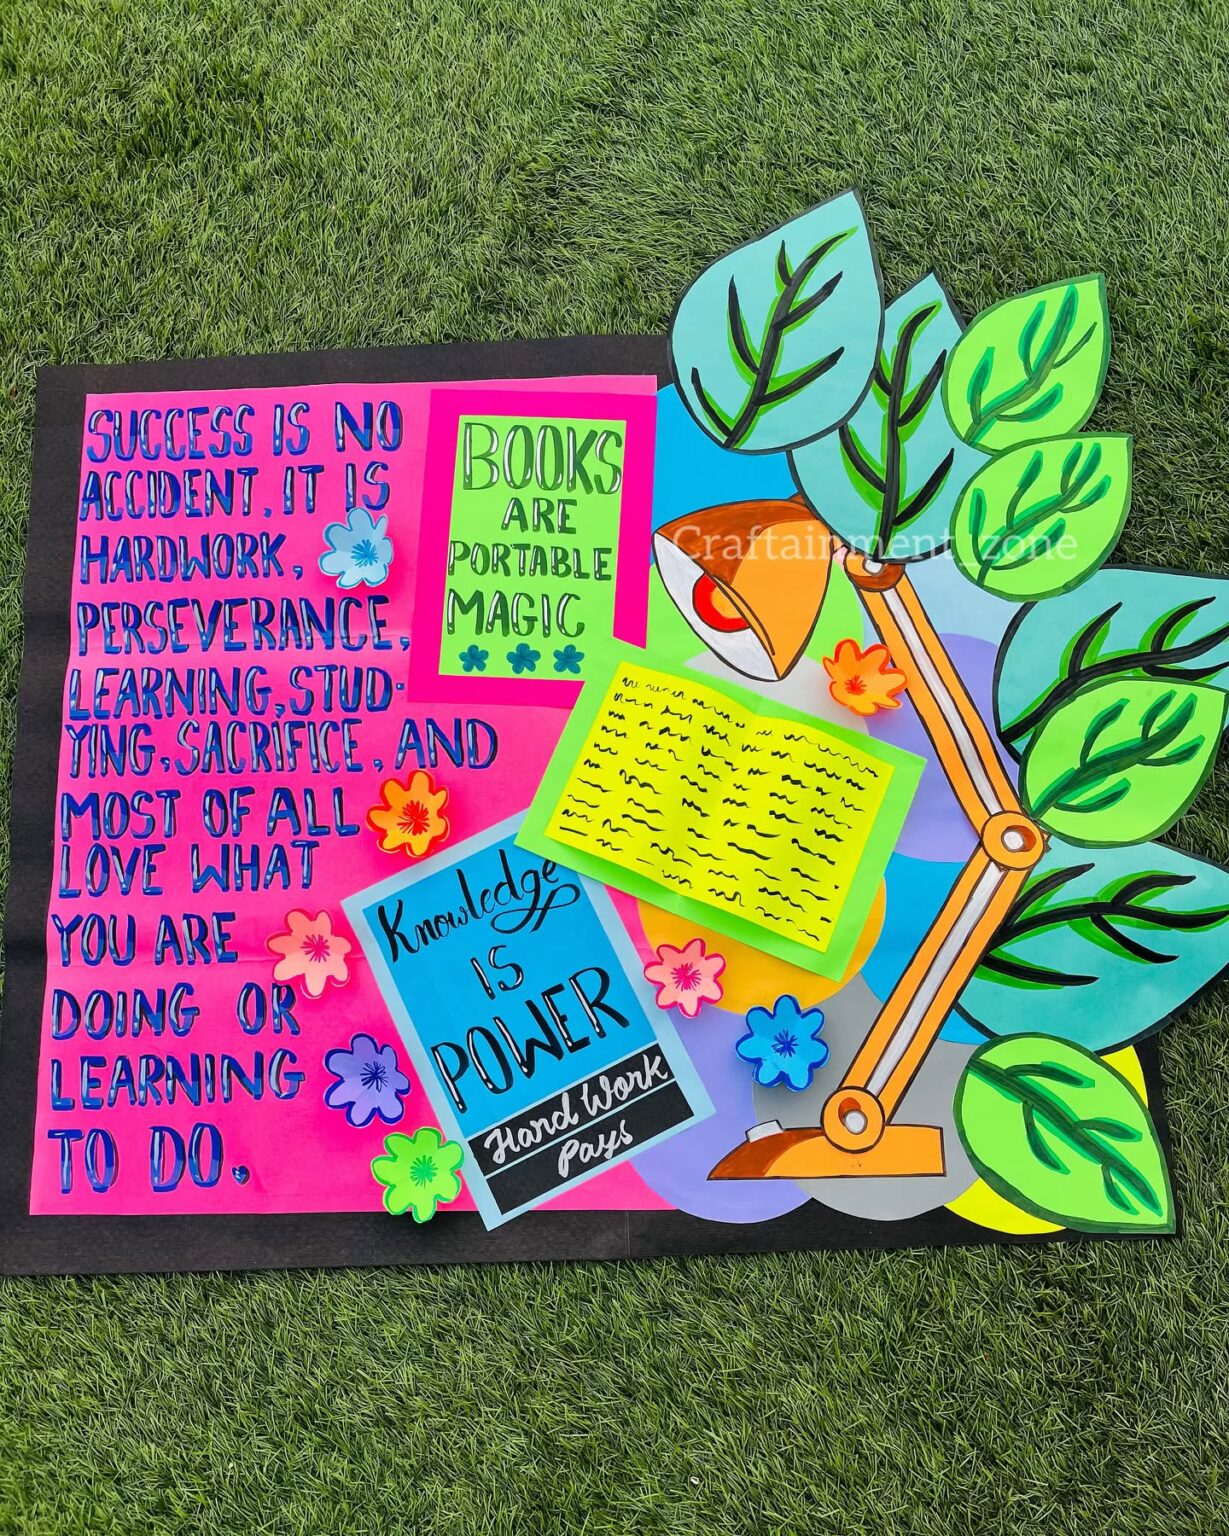 SUCCESS IS NO
ACCIDENT. IT IS
HARDWORK,
PERSEVERANCE,
LEARNING, STUD-
YING, SACRIFICE, AND
MOST OF ALL
LOVE WHAT
YOU ARE
DOING OR
LEARNING
TO DO.
BOOKS
ARE
PORTABLE
MAGIC
Knowledge
IS
POWER
Hard Work
Pays
Craftainment_zone